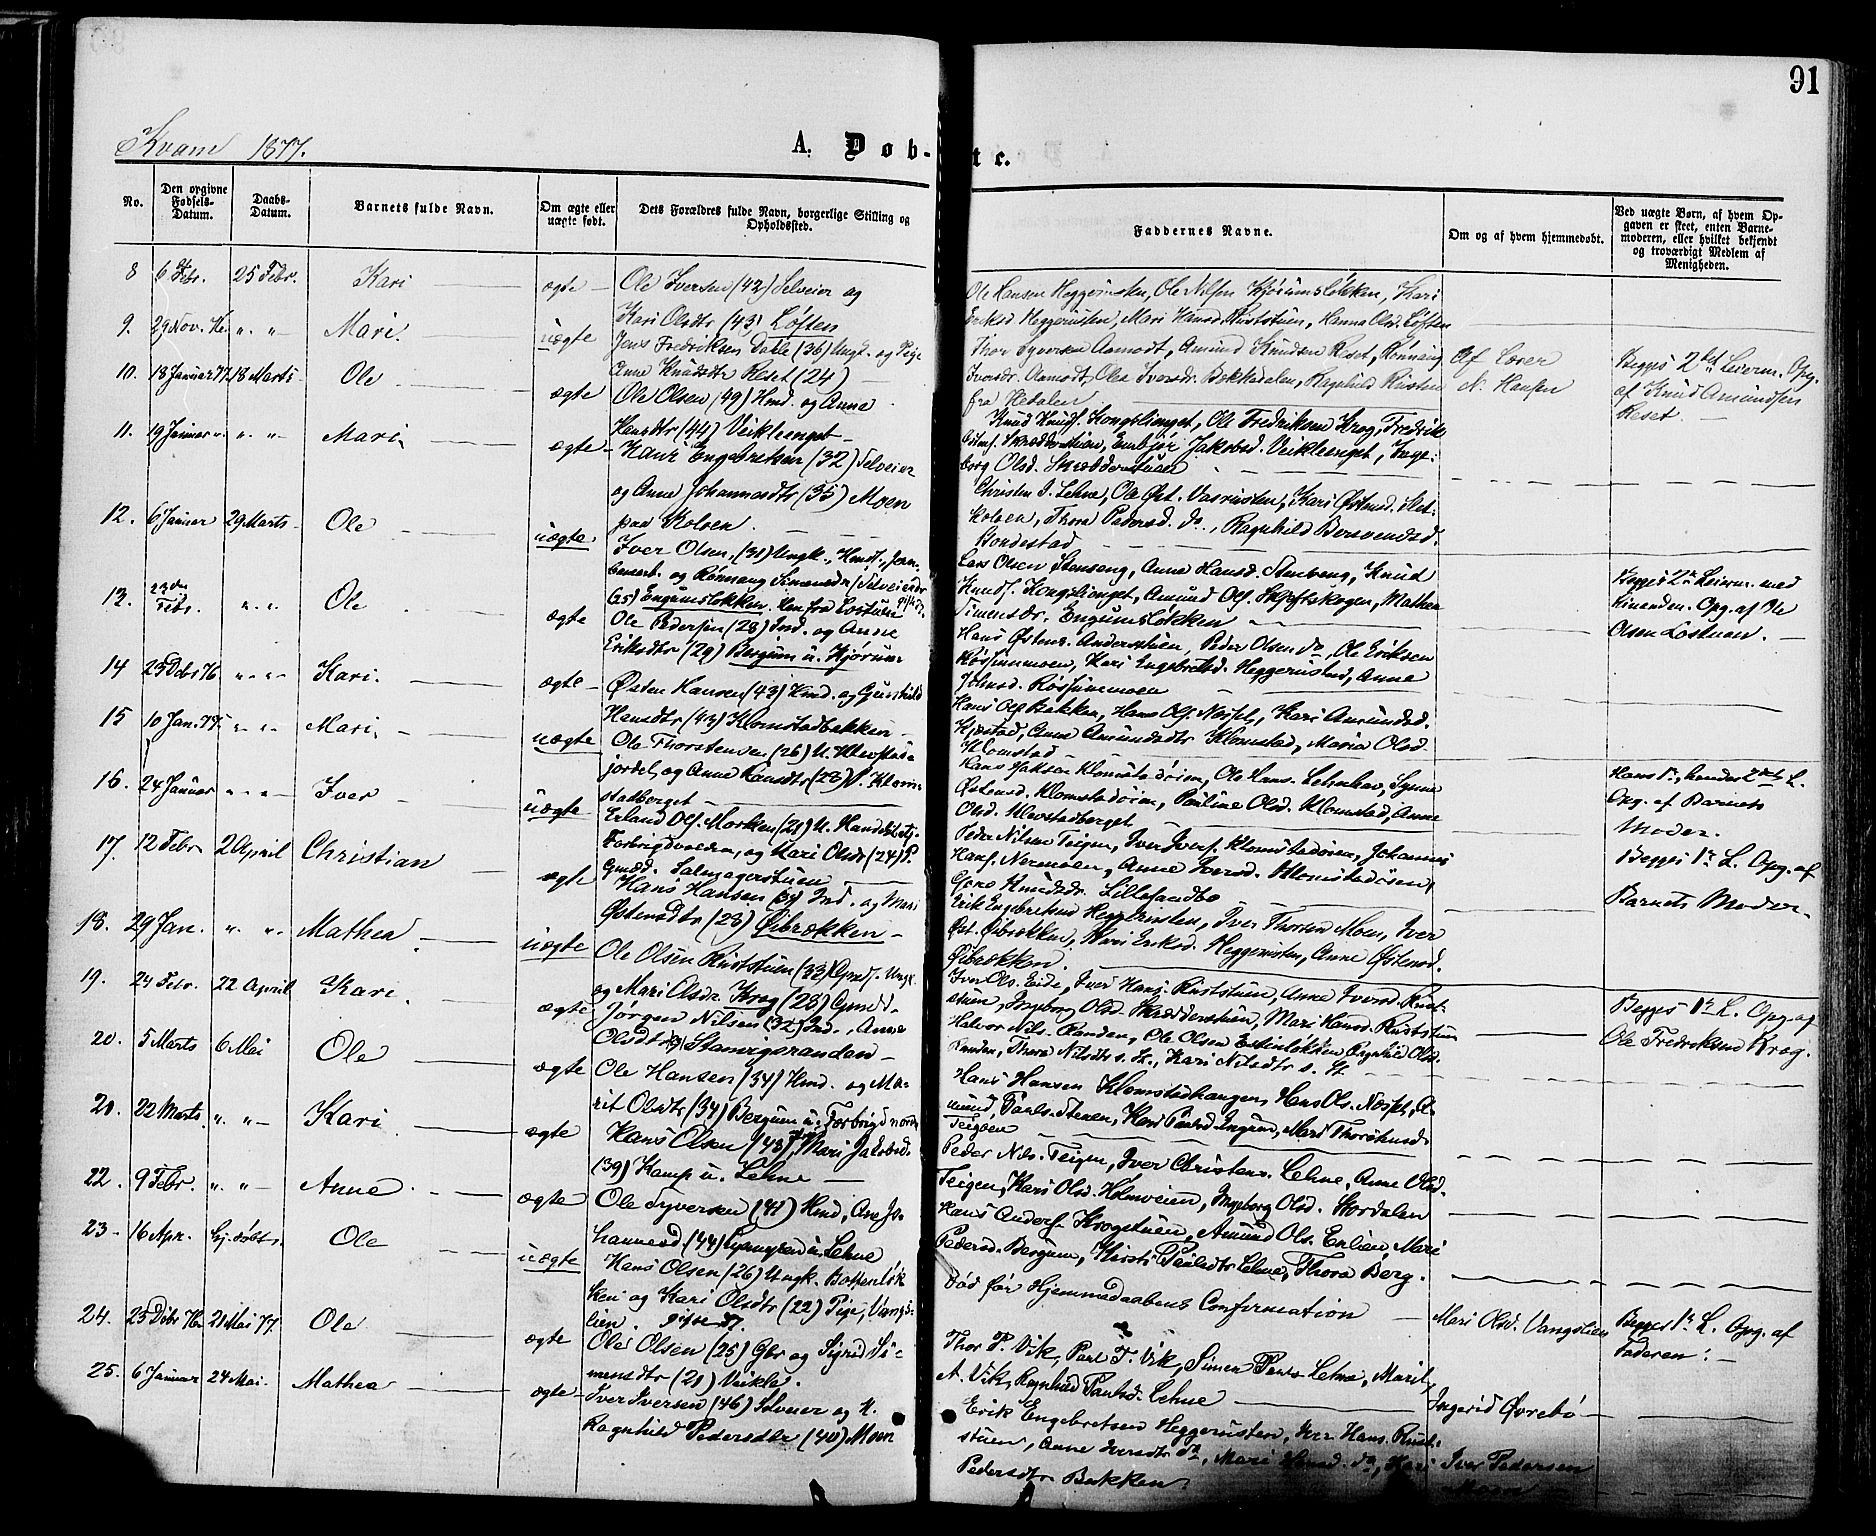 91
Kvam 1877.
A. Døb-te.
No.
Den opgivne Fødsels-Datum.
Daabs-Datum.
Barnets fulde Navn.
Om ægte eller uægte født.
Dets Forældres fulde Navn, borgerlige Stilling og Opholdssted.
Faddernes Navne.
Om og af hvem hjemmedøbt.
Ved uægte Børn, af hvem Opgaven er skeet, enten Barnemoderen, eller hvilket bekjendt og troværdigt Medlem af Menigheden.
8 6 Febr. 25 Febr. Kari ægte
Ole Iversen (42) Selveier og
Kari Olsdtr (43) Løften
Ole Hansen Heggerusten, Ole Nilsen Kjørumsløkken, Kari
Eriksd Heggerusten, Mari Hansd. Ruststuen, Hanna Olsd. Løften
9. 29 Nov. " " Mari. uægte
Jens Fredriksen Dahle (36) Ungk. og Pige
Anne Knudsdtr Reset (24)
Thor Syversen Aamodt, Amund Knudsen Reset, Rønnaug
Iversdr. Aamodt, Olea Iversdr. Bakkedalen, Ragnhild Rusten
fra Hedalen
Af Lærer
N. Hansen
Begges 2det Leierm. Opg.
af Knud Amundsen
Reset.
10. 18 Januar 77 18 Marts Ole ægte
Ole Olsen (49) Hmd. og Anne
Hansdtr (44) Veikleenget
Knud Knuds. Kongslienget, Ole Fredriksen Krog, Fredrik
Skrædderstuen, Embjør Jakobsd. Veikleenget, Inge-
borg Olsd. Skrædderstuen
11. 19 Januar " " " Mari ægte
Hans Engebretsen (32) Selveier
og Anne Johannesdtr (35) Moen
paa Koloen.
Christen I. Lehne, Ole Øst. Vasrusten, Kari Østensd. Slet-
Koloen, Thora Pedersd. do., Ragnhild Bersvendsd.
Bondestad
12. 6 Januar 29 Marts Ole uægte
Iver Olsen, (31) Ungk.,
og Rønnaug Simensdtr Selveierdr
(25) Engumsløkken.
Lars Olsen Stenseng, Anne Hansd. Stenseng, Knud
Knuds. Kongslienget, Amund Ols. Skoftskogen, Mathea
Simensdr. Engumsløkken
Begges 2det Leierm. med
hinanden. Opg. af Ole
Olsen Løstuen.
13. 22de Febr. " " Ole ægte
Ole Pedersen (28) Ind. og Anne
Eriksdtr (29) Bergum u. Kjørum
Hans Østens. Anderstuen, Peder Olsen do, Ole Eriksen
Røssummoen, Kari Engebretsd. Heggerusten, Anne
Johnsd. Røssummoen
14 25 Debr 76 " " Kari. ægte
Østen Hansen (43) Hmd. og Gunhild
Hansdtr (43) Klomstadbakken
Hans Ols Bakken, Hans Ols. Næsset, Kari Amundsd.
Kjæstad, Anne Amundsdtr Klomstad, Maria Olsd.
Klomstad
15 10 Jan. 77 " " Mari. uægte
Ole Thorstensen (26) U. Klevstad-
jordet, og Anne Hansdtr (28) P. Klom-
stadberget
Ole Hans. Lehnehav, Synne
Østensd. Klomstadøien, Pauline Olsd. Klomstad, Anne
Olsd. Klevstadberget
Hans 1ste, hendes 2det L.
Opg. af Barnets
Moder.
16. 24 Januar " " Iver uægte
Erland Ols. Morken (21) U. Handelsbetj.
Forbrigdvolden, og Kari Olsdr (24) P.
Salmagerstuen
Peder Nilsen Teigen, Iver Ivers. Klomstadøien, Johannes
Hans. Nermoen, Anne Iversd. Klomstadøien,
Gjøre Knudsdr. Lillesandbo
Begges 1ste L. Opg. af
Barnets Moder.
17. 12 Febr 2 April Christian ægte
Hans Hansen (31) Ind. og Mari
Østensdtr (28) Øibrækken
Erik Engebretsen Heggerusten, Iver Thorsen Moen, Iver
Øst. Øibrækken, Mari Eriksd. Heggerusten, Anne Østensd.
Øibrækken.
18. 29 Jan. " " Mathea uægte
Ole Olsen Ruststuen (33) Gmds. Ungk.
og Mari Olsdr. Krog (28) Gmdd.
Iver Ols. Eide, Iver Hans. Ruststuen, Anne Iversd. Rust-
stuen, Ingeborg Olsd. Skrædderstuen, Mari Hansd. Ruststuen
Begges 1ste L. Opg. af
Ole Fredriksen Krog.
19. 24 Febr. 22 April Kari. ægte
Jørgen Nilsen (32) Ind., Anne
Olsdtr Stamvigsranden
Halvor Nils. Randen, Ole Olsen Enlienløkken, Ragnhild Olsd.
Randen, Thora Nilsdtr s. St., Kari Nilsdtr s. St.
20. 5 Marts 6 Mai Ole ægte
Ole Hansen (34) Hmd. og Ma-
rit Olsdtr (34) Bergum u. Forbrigd nordre
Hans Hansen Klomstadhaugen, Hans Ols. Næset, A-
mund Pauls. Stenen, Kari Paulsd Engum, Mari Thorsteinsd.
Teigøen
21. 22 Marts " " Kari ægte
Hans Olsen (48), Mari Jakobsd.
(39) Kamp u. Lehne
Peder Nils. Teigen, Iver Christens. Lehne, Anne Olsd.
Teigen, Kari Olsd. Holmveien, Ingeborg Olsd. Stordalen
22. 9 Febr. " " Anne ægte
Ole Syversen (41) Hmd, Ane Jo-
hannesd (44) u. Lehne
Hans Anders. Krogstuen, Amund Ols. Enlien, Mari
Pedersd. Bergum, Kirsti Paulsdtr Lehne, Thora Berg.
23 16 Apr. Hj. døbt Ole uægte
Hans Olsen (26) Ungk. Bottenløk-
ken og Kari Olsdtr (22) Pige, Vangs-
lien.
Død før Hjemmedaabens Confirmation
Mari Olsd. Vangslien
Begges 1ste L. Opg. af
Faderen.
24. 25 Debr 76 21 Mai 77. Ole ægte
Ole Olsen (25) Gbr og Sigrid Si-
mensdtr (21) Veikle.
Thor P. Vik, Paul T. Vik, Simen Pauls Lehne, Marit
A. Vik, Ragnhild Paulsd. Lehne
Ingerid Øvrebø
25. 6 Januar 24 Mai. Mathea ægte
Iver Iversen (46) Selveier og H.
Ragnhild Pedersdtr (40) Moen
Erik Engebretsen Heggerusten, Iver Hans. Rust-
stuen, Anne Iversdtr do, Mari Hansd. do, Kari
Pedersdtr Bakken.
Iver Pedersen
Moen